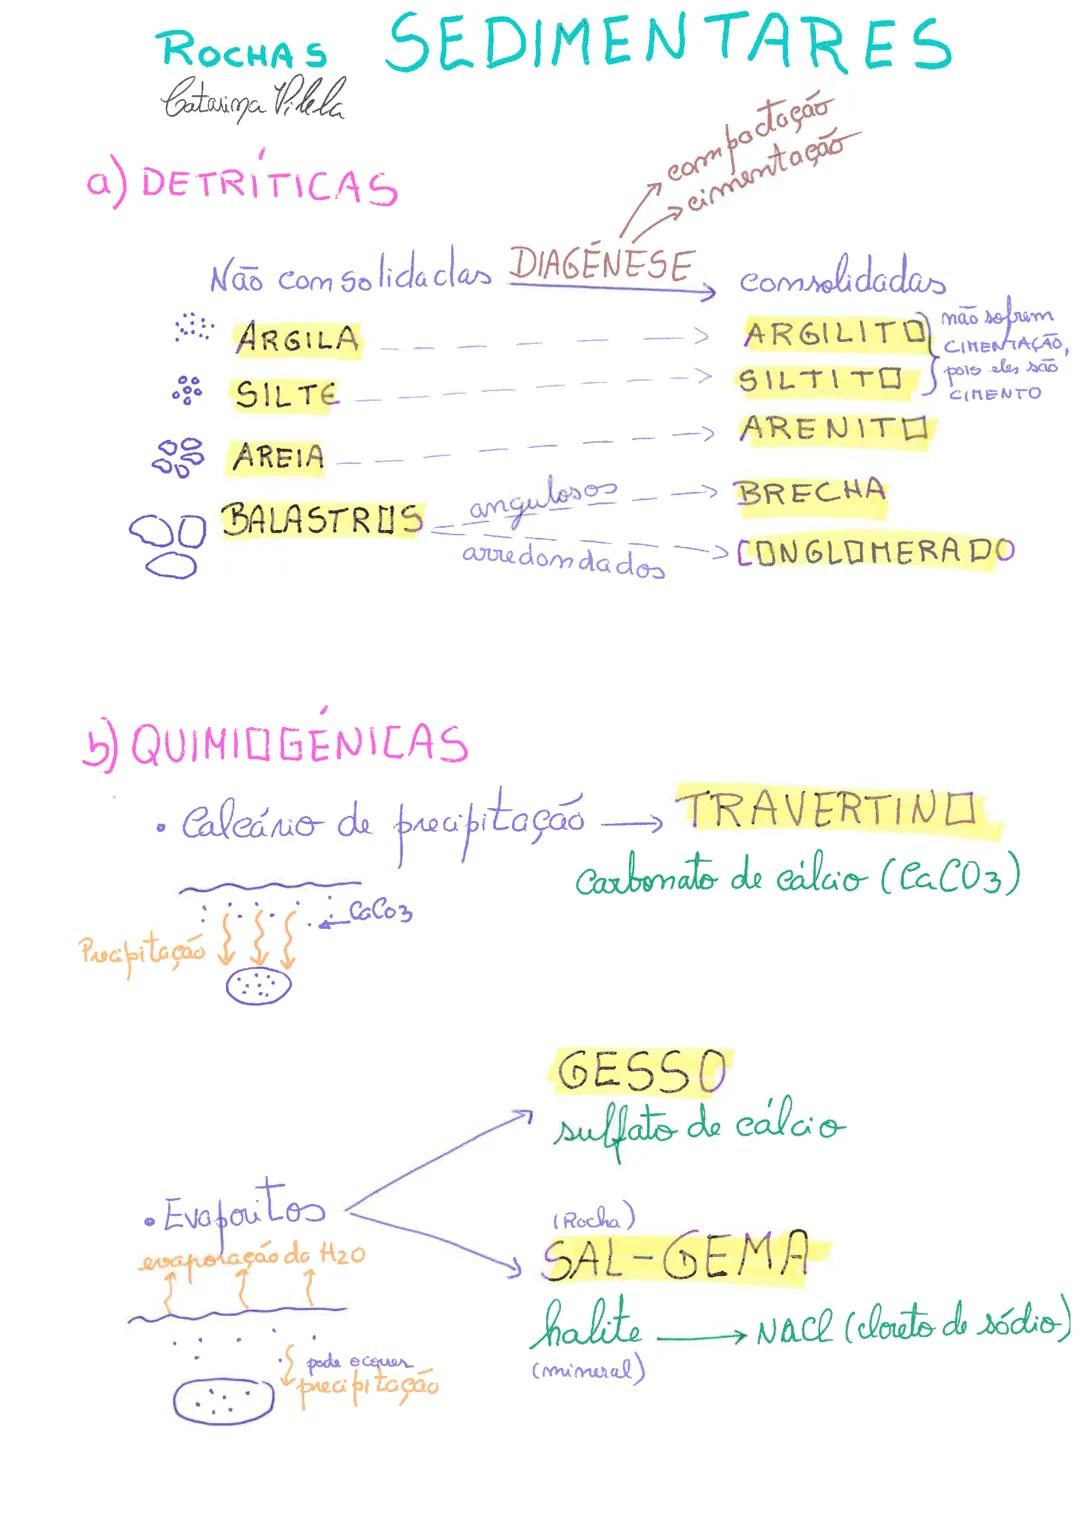 ROCHAS SEDIMENTARES
Catarina Vilela
compactação
cimentação
a) DETRÍTICAS
Não consolidadas DIAGÉNESE consolidadas
ARGILA ARGILITO
não sofrem
CIMENTAÇÃO,
pois eles são
CIMENTO
SILTE SILTITO
AREIA ARENITO
BALASTROS angulosos BRECHA
arredondados CONGLOMERADO
b) QUIMIOGÉNICAS
• Calcário de precipitação → TRAVERTINO
Carbonato de cálcio (CaCO3)
CaCo3
Precipitação
GESSO
sulfato de cálcio
• Evaporitos
evaporação da H2O
(Rocha)
SAL-GEMA
halite → NACl (cloreto de sódio)
(mineral)
pode ocorrer
precipitação